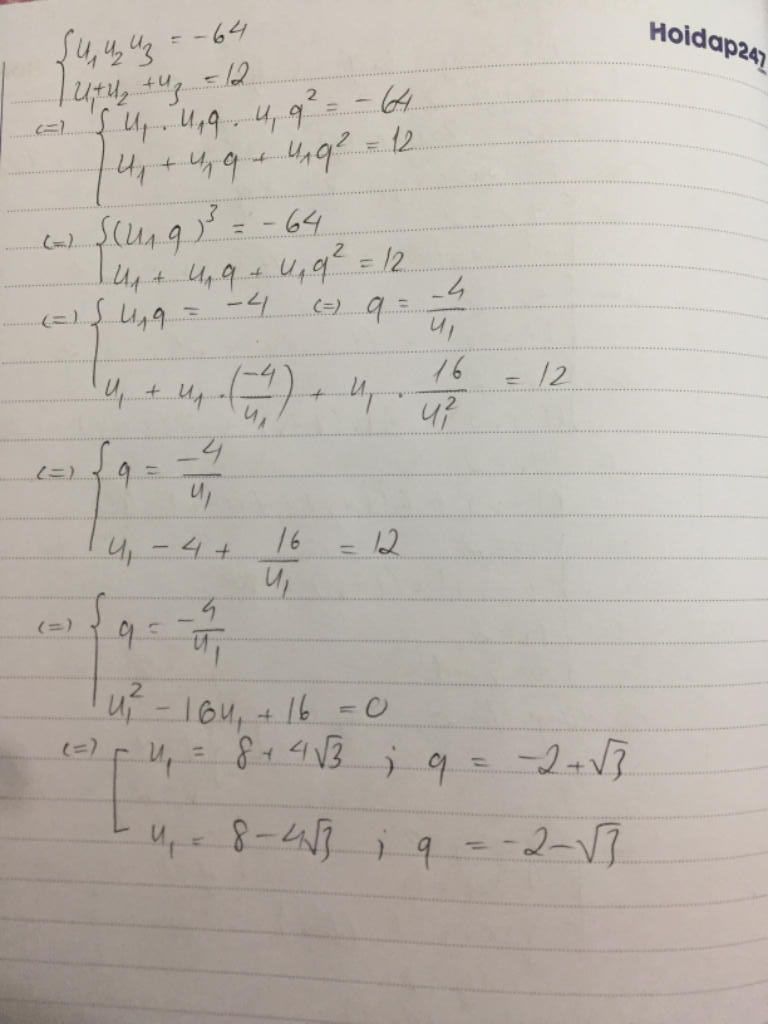 Hoidap247
{ u₁ u₂ u₃ = -64
u₁ + u₂ + u₃ = 12
(=) { u₁ . u₁q . u₁q² = -64
u₁ + u₁q + u₁q² = 12
(=) { (u₁q)³ = -64
u₁ + u₁q + u₁q² = 12
(=) { u₁q = -4 (=) q = -4/u₁
u₁ + u₁ . (-4/u₁) + u₁ . 16/u₁² = 12
(=) { q = -4/u₁
u₁ - 4 + 16/u₁ = 12
(=) { q = -4/u₁
u₁² - 16u₁ + 16 = 0
(=) [ u₁ = 8 + 4√3 ; q = -2 + √3
u₁ = 8 - 4√3 ; q = -2 - √3